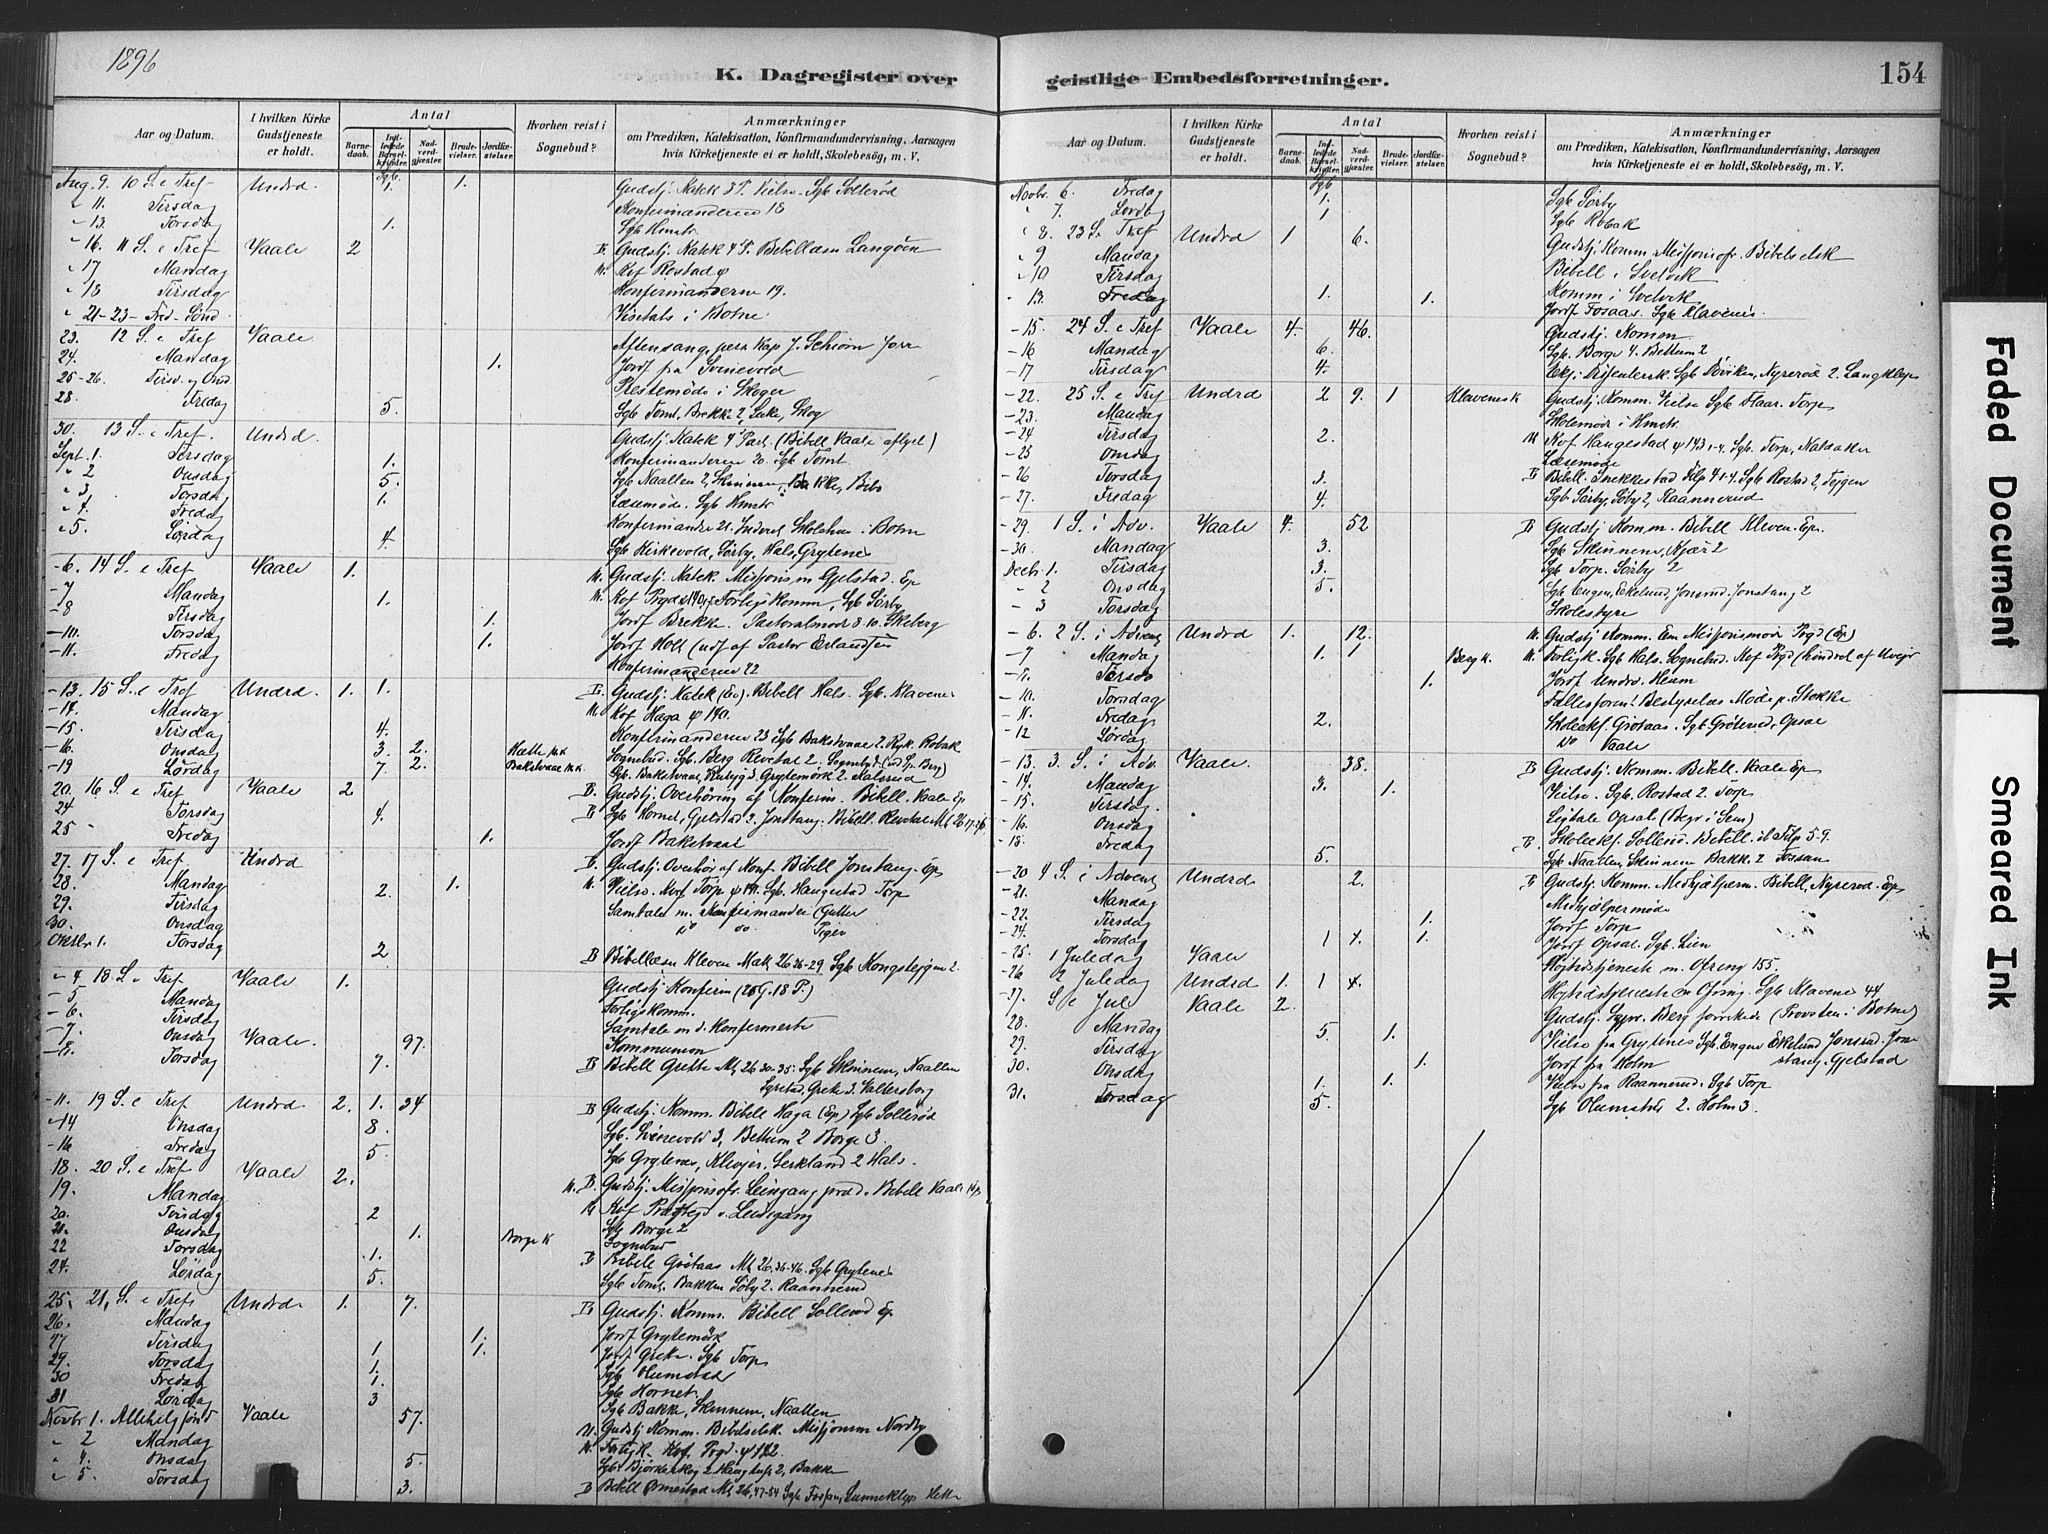 1896
K. Dagregister over
geistlige Embedsforretninger.
154
Aar og Datum.
I hvilken Kirke Gudstjeneste er holdt.
Antal
Barnedaab.
Indledede Barselkvinder.
Nadverdgjæster.
Brudevielser.
Jordfæstelser.
Hvorhen reist i Sognebud?
Anmærkninger
om Prædiken, Katekisation, Konfirmandundervisning, Aarsagen
hvis Kirketjeneste ei er holdt, Skolebesøg, m. V.
Aug. 9. 10 S. e Tref Undrd. Sgb. 1. 1. Gudstj. Katek 3 P. Vielse. Sgb Sollerød
" 11. Tirsdag Konfirmanderne 18
" 13. Torsdag 1. Sgb Hmstr
" 16. 11 S. e Tref Vaale 2 B Gudstj. Katek 4 P. Bibellæsn Langøen
" 17 Mandag M. Kof Rostad
" 18 Tirsdag Konfirmanderne 19.
" 21-23 - Fred - Sønd Visitats i Botne
23. 12 S. e Tref Vaale Aftensang, pers Kap J. Schiørn
24. Mandag 1. Jordf fra Svinevold
25-26. Tirsd. og Onsd. Prestemøde i Skoger
28. Fredag 5. Sgb Tomt. Brekke 2, Skog
30. 13 S. e Tref. Undrd. Gudstj. Katek 4 Part. (Bibell Vaale aflyst)
Sept. 1. Tirsdag 1. Konfirmanderne 20. Sgb Tomt.
" 2 Onsdag 5. Sgb Naallen 2, Skinnem, Bakke, Bibo
" 3 Torsdag 1. Læsemøde. Sgb Hmstr
" 4. Fredag Konfirmander 21. Skolehus i Botne
" 5. Lørdag 4. Sgb Kirkevold, Sørby, Hals, Grytenes
- 6. 14 S. e Tref Vaale 1. M. Gudstj. Katek. Misjonsm Gjelstad. Ep
- 7 Mandag 1. M. Kof Prgd Forligskomm, Sgb Sørby
- 8 Tirsdag 1. Jordf Brekke. Pastoralmøde 8 10. Skeberg
- 10. Torsdag 1. Jordf Holt (udf af Pastor Erlandsen
- 11. Fredag Konfirmanderne 22
- 13. 15 S. e Tref Undrd. 1. 1. B. Gudstj. Katek (Ev). Bibell Hals. Sgb. Klavenes
- 14. Mandag M. Kof Haga 140.
- 15. Tirsdag 4. Konfirmanderne 23 Sgb Bakstvaal 2. Robak
- 16. Onsdag 3. 2. Sognebud. Sgb. Berg Revetal 2.
- 19 Lørdag 7. 2. Bakstvaal Sgb. Bakstvaal, Grytemørk 2.
20. 16 S. e Tref Vaale 2 B. Gudstj. Overhøring af Konfirm. Bibell. Vaale Ep
24 Torsdag 4. B Sgb Hornet, Gjelstad 2. Jonstang. Bibell. Revetal Mt 26 17-25
25 Fredag 1. Jordf Bakstvaal
27. 17 S. e Tref Undrd B. Gudstj. Overhør af Konf. Bibell Jonstang. Ep
28. Mandag 2. 1. M. Vielse. Kof Torp 141. Sgb. Haugestad Torp
29. Tirsdag Samtale m. Konfirmander (Gutter
30. Onsdag do do Piger
Oktbr 1. Torsdag 2 B Bibellæsn Kleven Mat 26 26-29 Sgb Kongstejgen 2.
- 4 18 S. e Tref Vaale 1. Gudstj Konfirm (26 G. 18 P.)
- 5. Mandag Forligskomm.
- 6. Tirsdag Samtale m d. Konfirmerte
- 7. Onsdag Vaale. 97. Kommunion
- 8. Torsdag 7. B Bibell Grette Mt 26 30-35. Sgb Skinnem, Naallen
Grette 3. Valbersborg
- 11. 19 S. e Tref Undrd. 2. 1. 34 B Gudstj. Komm. Bibell Haga (Ep) Sgb Sollerød
- 14 Onsdag 8. Sgb. Svinevold 3, Bettum 2 Borge 3.
- 16 Fredag 5. Sgb Grytenes, Klevjer, Serkland 2 Hals.
18. 20 S. e Tref Vaale 2. M. B. Gudstj. Misjonsofr. Leingang præd. Bibell Vaale
19. Mandag M Kof v. Leingang
20. Tirsdag 2 Sgb Borge 2
21. Onsdag 1. Borge K Sognebud
22 Torsdag 1. B Bibell Gøstaas Mt 26, 36-46. Sgb Grytenes
24. Lørdag 5. Sgb Tomt, Bakken Søby 2. Raannerud
25. 21. S. e Tref Undrd. 1. 7. B Gudstj. Komm. Bibell Sollerød Ep
26. Mandag Jordf Grytemørk
27 Tirsdag 1 1. Jordf Grette. Sgb Torp
29. Torsdag 1. Sgb Olumstad
30 Fredag 1. Sgb Hornet.
31 Lørdag 3 Sgb Bakke, Skinnem, Naallen
Novbr 1. Allehelgsønd Vaale 57. M. Gudstj Komm. Bibelselsk. Misjonsm Nordby
" 2 Mandag M. Forligk. Kof. Prgd. 142.
" 4. Onsdag 5. Sgb. Bjørkeskog 2 2, Bakke
" 5. Torsdag 3. B Bibell Ormestad Mt 26, 47-54 Sgb Fossan, Linneklepp Hette
Aar og Datum.
I hvilken Kirke Gudstjeneste er holdt.
Antal
Barnedaab.
Indledede Barselkvinder.
Nadverdgjæster.
Brudevielser.
Jordfæstelser.
Hvorhen reist i Sognebud?
Anmærkninger
om Prædiken, Katekisation, Konfirmandundervisning, Aarsagen
hvis Kirketjeneste ei er holdt, Skolebesøg, m. V.
Novbr. 6. Fredag Sgb 1. Sgb. Sørby
" 7. Lørdg 1 Sgb Robak
" 8. 23 S. Tref Undrd 1 6. Gudstj. Komm. Misjonsofr. Bibelselsk
" 9 Mandag Bibell i Svelvik
" 10 Tirsdag Komm i Svelvik
- 13. Fredag 1. 1. Jordf Fosaas. Sgb Klavenes.
- 15. 24 S. e Tref Vaale 4. 46. Gudstj. Komm
- 16 Mandag 6. Sgb. Borge 4. Bettum 2
- 17 Tirsdag 4. Sgb Døviken, Nyrerød 2. Langklep
- 22. 25 S. e Tref Undrd 2 9. 1 Klavenes K Gudstj. Komm. Vielse Sgb Haar. Torp
- 23. Mandag Skolemøde i Hmstr.
- 24 Tirsdag 2. M Kof. Haugestad 143. Sgb. Torp, Nalsaaker
- 25 Onsdag Læsemøde
- 26 Torsdag 3. B Bibell. Snekkestad Filp 4+4. Sgb Rostad 2, Tejgen
- 27. Fredag 4. Sgb. Sørby, Søby 2, Raannerud
- 29. 1 S. i Adv. Vaale 4. 52 B Gudstj Komm. Bibell Kleven. Ep.
- 30. Mandag 3. Sgb Skinnem, Kjær 2
Decbr. 1. Tirsdag 3. Sgb Torp. Sørby 2
- 2 Onsdag 5. Sgb Engen, Ekelund, Jonsrud. Jonstang 2
- 3 Torsdag Skolestyre
- 6. 2 S. i Advent Undrd 1. 12. M. Gudstj. Komm. Em Misjonsmøde Prgd (Ep)
- 7 Mandag 1. 1 Berg K. M. Forligk. Sgb Hals. Sognebud. Kof Prgd (hindret af Uvejr
- 8. Tirsda 1. Jordf Undrd. Heum
- 10. Torsdag Fællesforen! Bestyrelses Møde p. Stokke
- 11. Fredag 2. Skoleekf. Gretaas. Sgb Grøtsrud, Opsal
- 12 Lørdag Do Vaale
- 13. 3. S. i Adv. Vaale. 38. B Gudstj. Komm. Bibell. Vaale Ep
- 14. Mandag 3. 1. Vielse. Sgb. Rostad 2. Torp
- 15. Tirsdag. Ligtale Opsal (Begr i Sem)
- 16. Onsdag Skoleekf. Sollerød. Bibell. Filp 5-9.
- 18. Fredag 5. B. Sgb Naallen, Skinnem Bakk. 2 Fossan
- 20 4 S. i Advent Undrd 2. B Gudstj. Komm. Medhjælperm. Bibell. Nyrerød. Ep
- 21. Mandag Medhjælpermøde
- 22. Tirsdag 1. Jordf Torp
- 24. Torsdag 1 4. 1. Jordf Opsal. Sgb. Lien
- 25. 1 Juledag Vaale Højtidstjeneste m. Ofring 155.
- 26 2 Juledag Undrd 1. 1 4. Højtidstjeneste m Ofring. Sgb Klavene 44
- 27. S. e Jul Vaale 2. Gudstj. Berg forrettede (Provsten i Botne)
28. Mandag 5. 1. Vielse fra Grytenes Sgb. Engen Ekelund Jonsrud. Jon
29. Tirsdag 1. Jordf fra Holm stang. Gjelstad
30. Onsdag 1. 1. Vielse fra Raannerud. Sgb Torp
31. Torsdag 5. Sgb Olumstad 2. Holm 3.
Faded Document
Smeared Ink